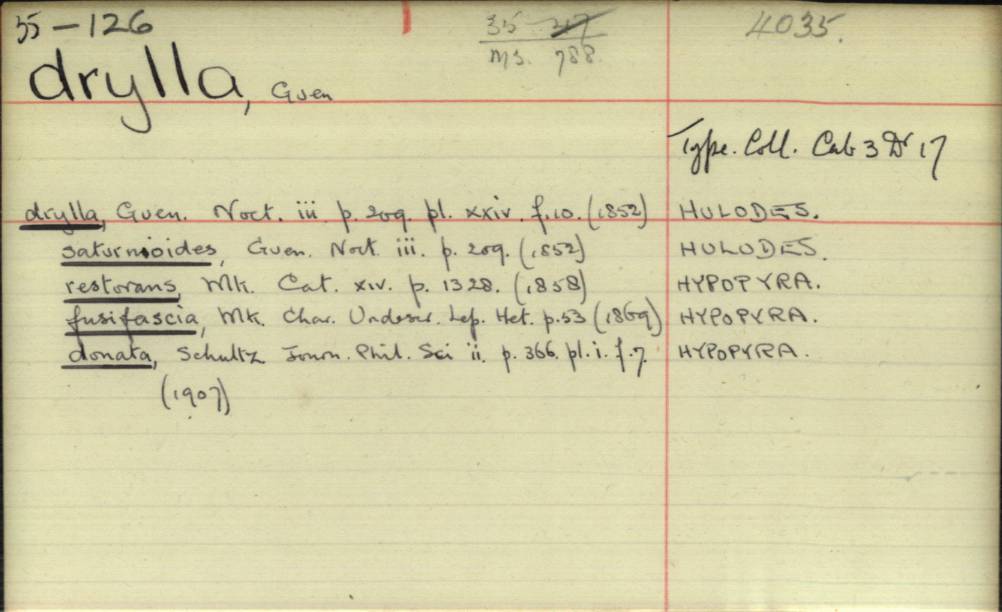 35-126
35 317
4035.
MS. 788.
drylla, Guen
Type. Coll. Cab 3 Dr 17
drylla, Guen. Noct. iii p. 209. pl. xxiv. f.10. (1852) HULODES.
saturnioides, Guen. Noct. iii. p. 209. (1852) HULODES.
restorans, Wlk. Cat. xiv. p. 1328. (1858) HYPOPYRA.
fusifascia, Wlk. Char. Undescr. Lep. Het. p.53 (1869) HYPOPYRA.
donata, Schultz Journ. Phil. Sci ii. p. 366. pl. i. f.7. HYPOPYRA.
(1907)